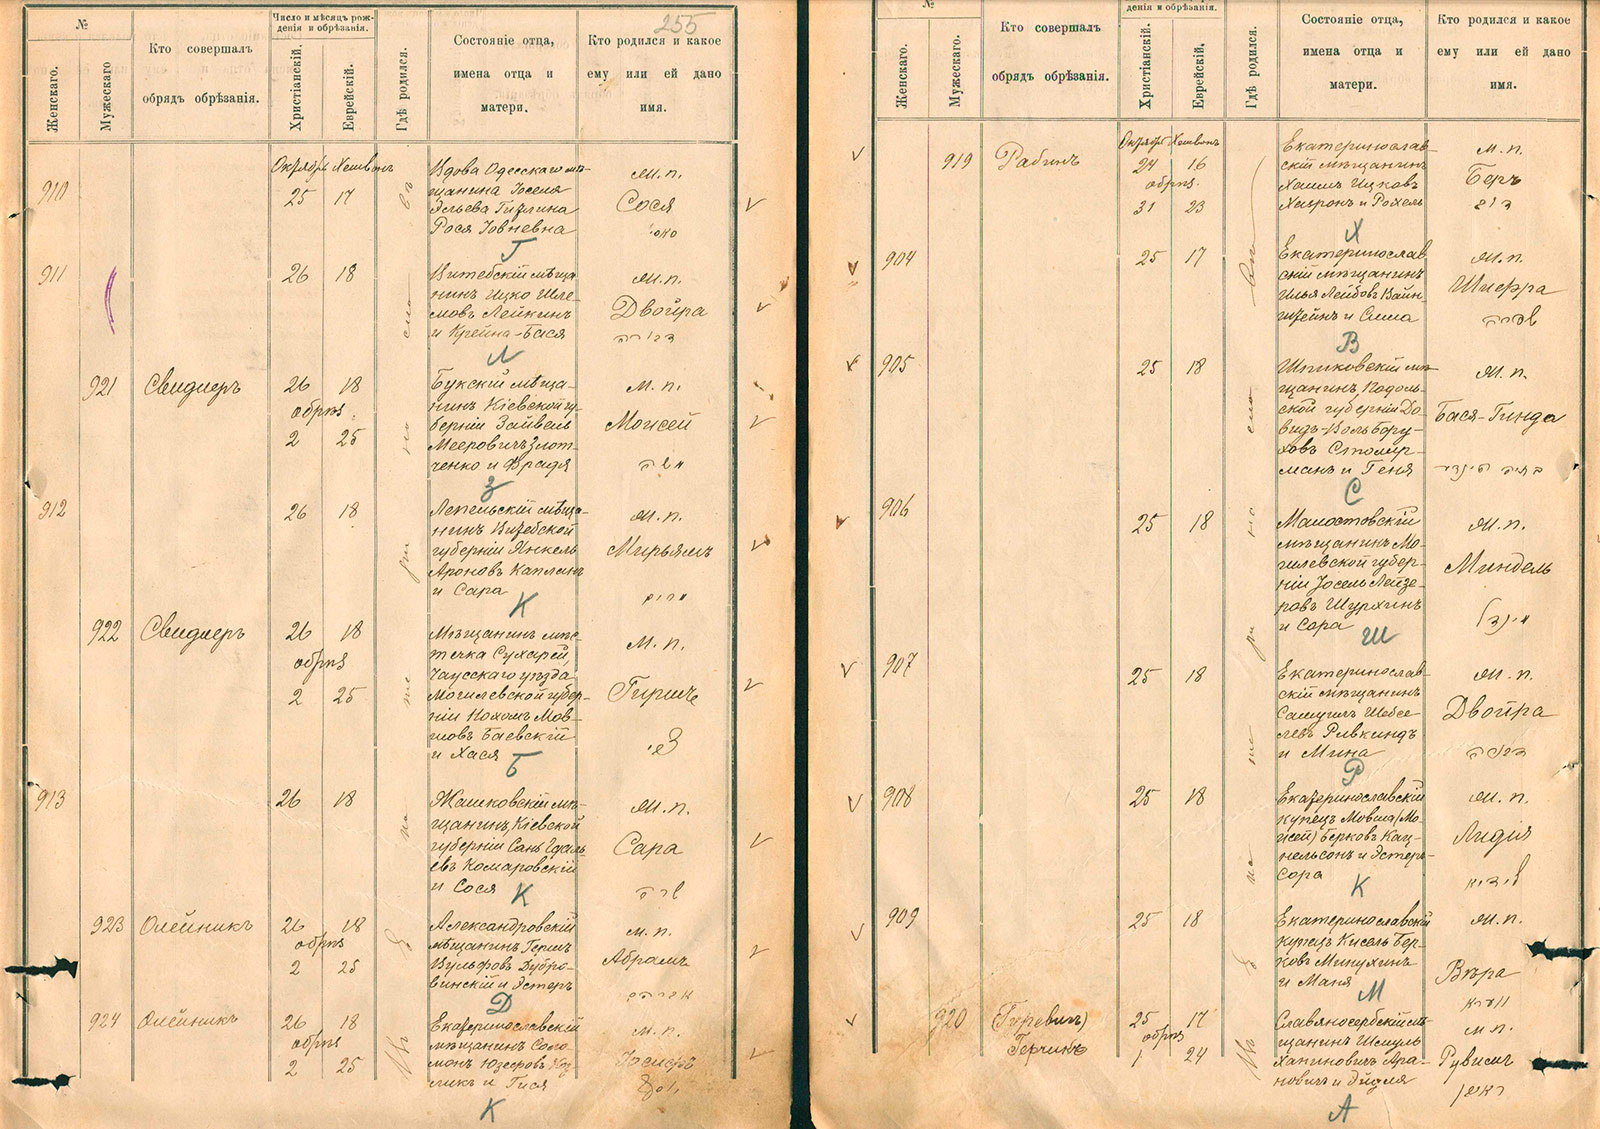 №
Женскаго.
Мужескаго
Кто совершалъ
обрядъ обрѣзанія.
Число и мѣсяцъ рож-
денія и обрѣзанія.
Христіанскій.
Еврейскій.
Гдѣ родился.
Состояніе отца,
имена отца и
матери.
255
Кто родился и какое
ему или ей дано
имя.
Октябрь Хешвонъ
910
25 17
Вдова Одесскаго мѣ-
щанина Іоселя
Эльева
Рося Іовневна
м. п.
Сося
Г
911
26 18
Витебскій мѣща-
нинъ Ицко Шле-
мовъ Лейкинъ
и Крейна-Бася
м. п.
Двойра
דבורה
Л
921
Свидлеръ
26 18
обрѣз.
2 25
Букскій мѣща-
нинъ Кіевской гу-
берніи Зайвель
Мееровичъ Злот-
ченко и Фрадя
м. п.
Моисей
משה
З
912
26 18
Лепельскій мѣща-
нинъ Витебской
губерніи Янкель
Ароновъ Капланъ
и Сара
м. п.
Мирьямъ
מרים
К
922
Свидлеръ
26 18
обрѣз
2 25
Мѣщанинъ мѣс-
течка Сухарей,
Чаусскаго уѣзда
Могилевской губер-
ніи Нохомъ Мов-
шовъ Баевскій
и Хася
м. п.
Гиршъ
צבי
Б
913
26 18
Жашковскій мѣ-
щанинъ, Кіевской
губерніи
евъ Комаровскій
и Сося
м. п.
Сара
שרה
К
923
Олейникъ
26 18
обрѣз
2 25
Александровскій
мѣщанинъ Гершъ
Вульфовъ Дубро-
винскій и Эстеръ
м. п.
Абрамъ
אברהם
Д
924
Олейникъ
26 18
обрѣз
2 25
Екатеринославскій
мѣщанинъ Соло-
монъ
и Гися
м. п.
Іосифъ
יוסף
К
№
Женскаго.
Мужескаго.
Кто совершалъ
обрядъ обрѣзанія.
денія и обрѣзанія.
Христіанскій.
Еврейскій.
Гдѣ родился.
Состояніе отца,
имена отца и
матери.
Кто родился и какое
ему или ей дано
имя.
Октябрь Хешвонъ
919
Рабинъ
24 16
обрѣз.
31 23
Екатеринослав-
скій мѣщанинъ
Хаимъ Ицковъ
и Рохель
м. п.
Беръ
Х
904
25 17
Екатеринослав
скій мѣщанинъ
Илья Лейбовъ Вайн-
штейнъ и Сима
м. п.
Шифра
שפרה
В
905
25 18
Шпиковскій мѣ-
щанинъ Подоль-
ской губерніи До-
видъ-Воль Бору-
ховъ Столир-
манъ и Геня
м. п.
Бася-Гинда
С
906
25 18
мѣщанинъ Мо-
гилевской губер-
ніи Іосель Лейзе-
ровъ Шурхинъ
и Сора
м. п.
Миндель
מינדל
Ш
907
25 18
Екатеринослав-
скій мѣщанинъ
Самуилъ Шебсе-
левъ Ривкиндъ
и Мина
м. п.
Двойра
דבורה
Р
908
25 18
Екатеринославскій
купецъ Мовша (Мо-
исей) Берковъ Кац-
нельсонъ и Эстеръ-
Сора
м. п.
Лидія
לידיא
К
909
25 18
Екатеринославскій
купецъ Кисель Бер-
ковъ Минухинъ
и Маня
м. п.
Вѣра
ווערא
М
920
(Гиревичъ)
Герчикъ
25 17
обрѣз
1 24
Славяносербскій мѣ-
щанинъ Шмуль
Ханиновичъ Ара-
новичъ и Эйдля
м. п.
Рувимъ
ראובן
А